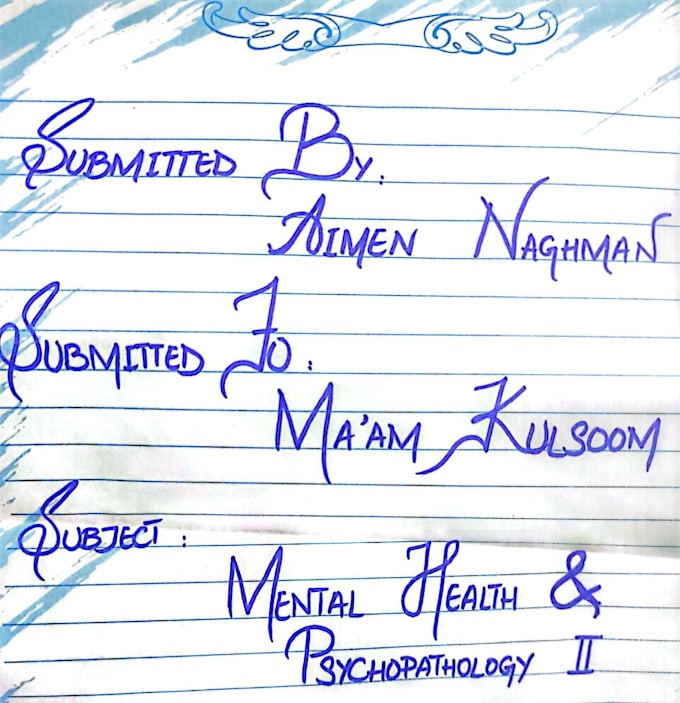 SUBMITTED BY:
AIMEN NAGHMAN
SUBMITTED TO:
MA'AM KULSOOM
SUBJECT:
MENTAL HEALTH &
PSYCHOPATHOLOGY II